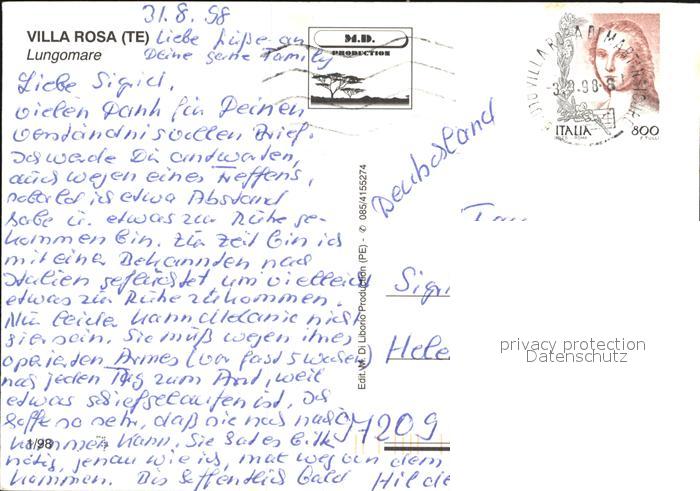 31.8.98
VILLA ROSA (TE)
Lungomare
Liebe Grüße an
Deine ganze Family
M.D.
PRODUCTION
ITALIA 800
Liebe Sigrid,
vielen Dank für Deinen
verständnisvollen Brief.
Ich werde Dir antworten,
auch wegen eines Treffens,
sobald ich etwas Abstand
habe u. etwas zur Ruhe ge-
kommen bin. Zur Zeit bin ich
mit einer Bekannten nach
Italien geflüchtet um vielleicht
etwas zur Ruhe zu kommen.
Nur leider kann Melanie nicht
hier sein. Sie muß wegen ihres
operierten Armes (vor fast 5 Wochen)
noch jeden Tag zum Arzt, weil
etwas schiefgelaufen ist. Ich
hoffe so sehr, daß sie noch nach-
kommen kann. Sie hat es
nötig, genau wie ich, mal weg von dem
kommen. Bis hoffentlich bald
Deutschland
Sigri
Hele
97209
Hilde
Edit. M. Di Liborio Production (PE) - ✆ 085/4155274
1/98
privacy protection
Datenschutz